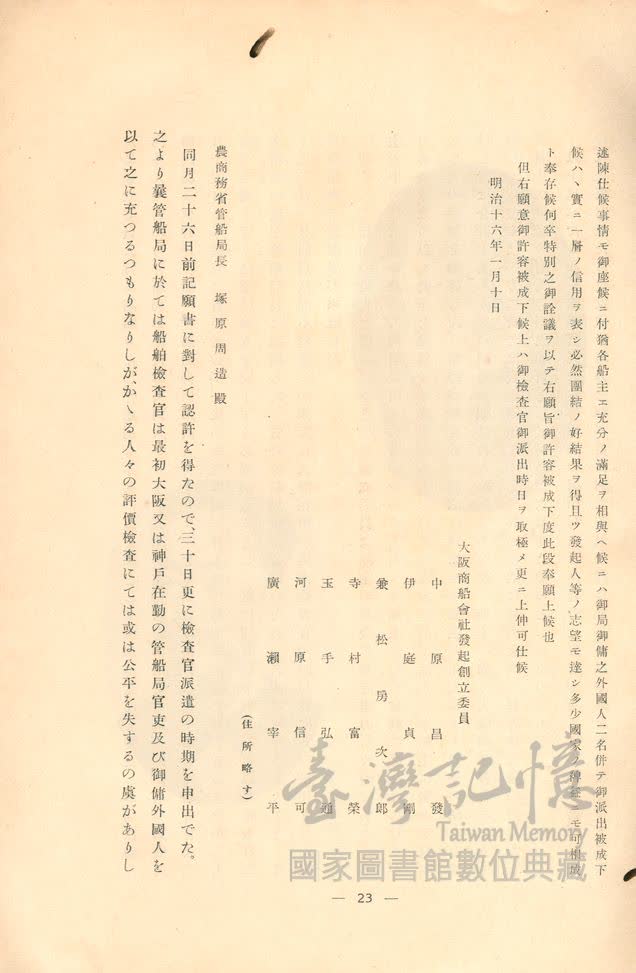 述陳仕候事情モ御座候ニ付猶各船主エ充分ノ滿足ヲ相與ヘ候ニハ御局御傭之外國人二名併テ御派出被成下
候ハヽ實ニ一層ノ信用ヲ表シ必然團結ノ好結果ヲ得且ツ發起人等ノ志望モ達シ多少國家ノ薄經ニモ可相成
ト奉存候何卒特別之御詮議ヲ以テ右願旨御許容被成下度此段奉願上候也
但右願意御許容被成下候上ハ御檢査官御派出時日ヲ取極メ更ニ上伸可仕候
明治十六年一月十日
大阪商船會社發起創立委員
中原昌發
伊庭貞剛
兼松房次郎
寺村富榮
玉手弘通
河原信可
廣瀨宰平
(住所略す)
農商務省管船局長 塚原周造殿
同月二十六日前記願書に對して認許を得たので、三十日更に檢査官派遣の時期を申出でた。
之より曩管船局に於ては船舶檢査官は最初大阪又は神戶在勤の管船局官吏及び御傭外國人を
以て之に充つるつもりなりしが、かゝる人々の評價檢査にては或は公平を失するの虞がありし
臺灣記憶
Taiwan Memory
國家圖書館數位典藏
— 23 —